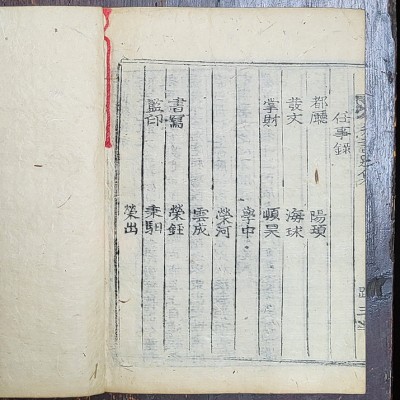 任事錄
都廳 陽瑱
發文 海球
掌財 頓昊
學中
榮河
雲成
書寫 榮鈺
監印 秉馹
榮出